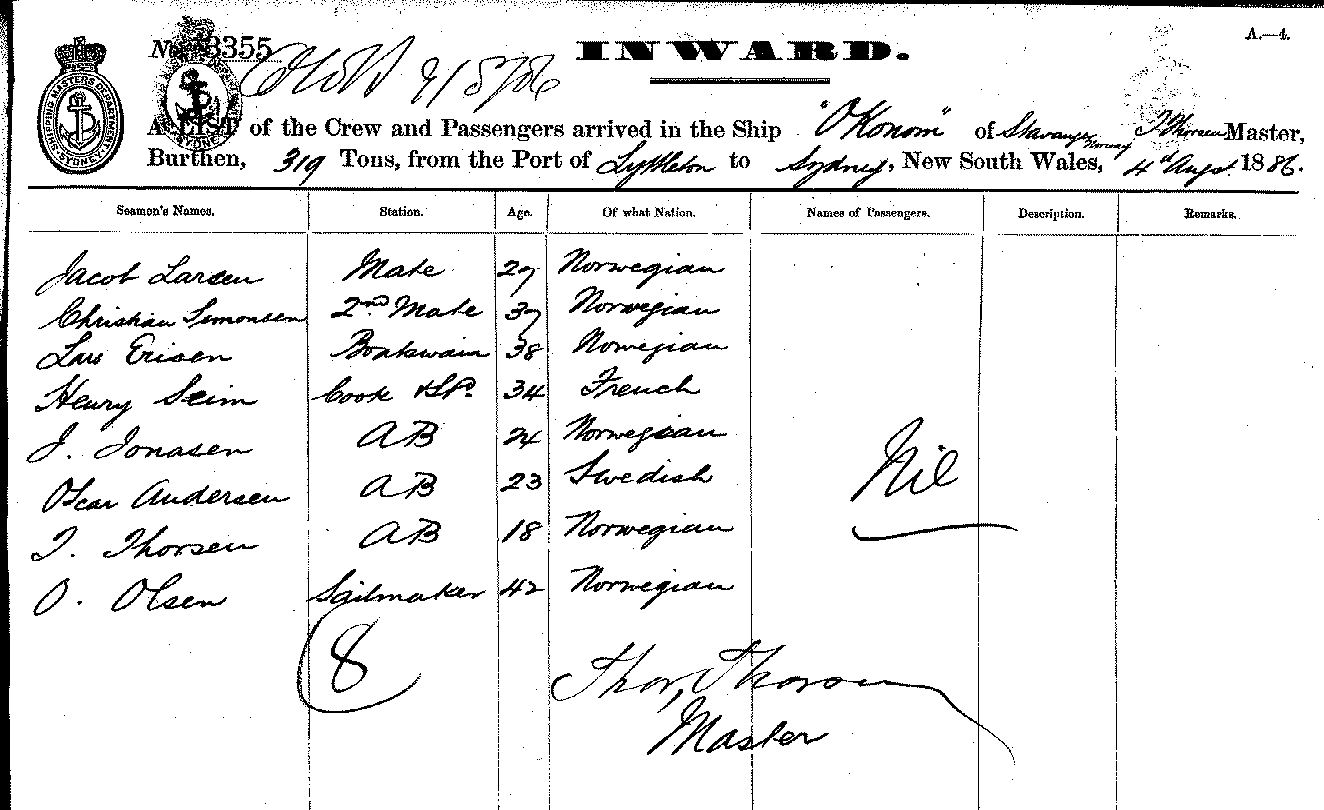 No. 3355
INWARD.
A.—4.
9/8/86
SHIPPING MASTERS DEPARTMENT SYDNEY
SYDNEY
A LIST of the Crew and Passengers arrived in the Ship "Okonom" of Stavanger Norway T Thorsen Master,
Burthen, 319 Tons, from the Port of Lyttleton to Sydney, New South Wales, 4th Augt. 1886.
Seamen's Names. Station. Age. Of what Nation. Names of Passengers. Description. Remarks.
Jacob Larsen Mate 27 Norwegian
Christian Simonsen 2nd Mate 37 Norwegian
Lars Ericen Boatswain 38 Norwegian
Henry Seim Cook & Std. 34 French
J. Jonasen AB 24 Norwegian
Oscar Andersen AB 23 Swedish
T. Thorsen AB 18 Norwegian
O. Olsen Sailmaker 42 Norwegian
Nil
8
Thor, Thorsen
Master